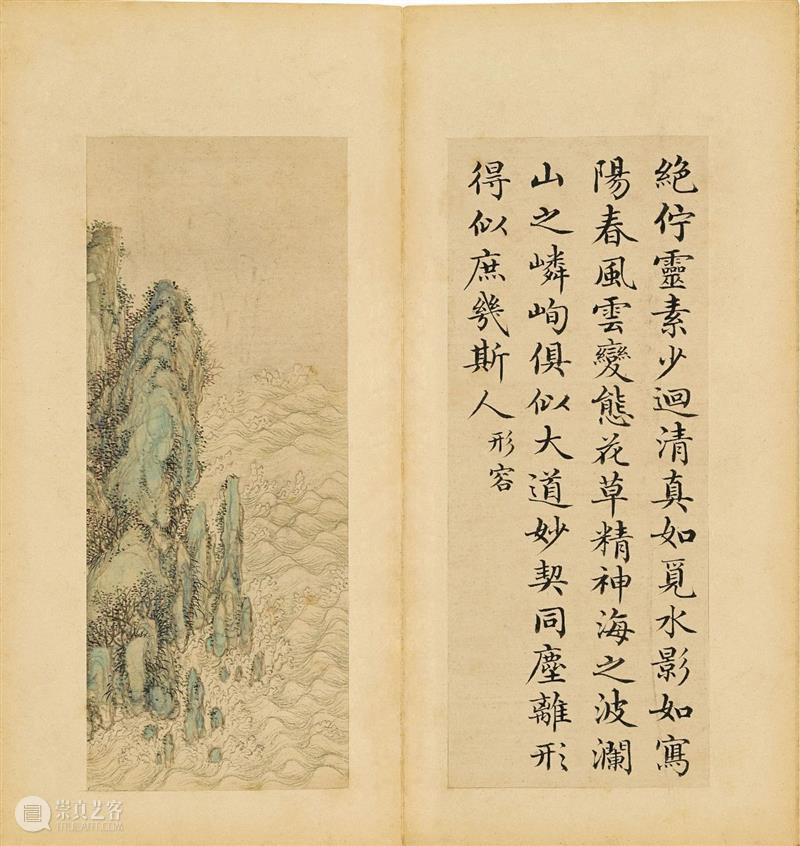 絕佇靈素少迴清真如覓水影如寫
陽春風雲變態花草精神海之波瀾
山之嶙峋俱似大道妙契同塵離形
得似庶幾斯人形容
崇真艺客
TRUEART.COM